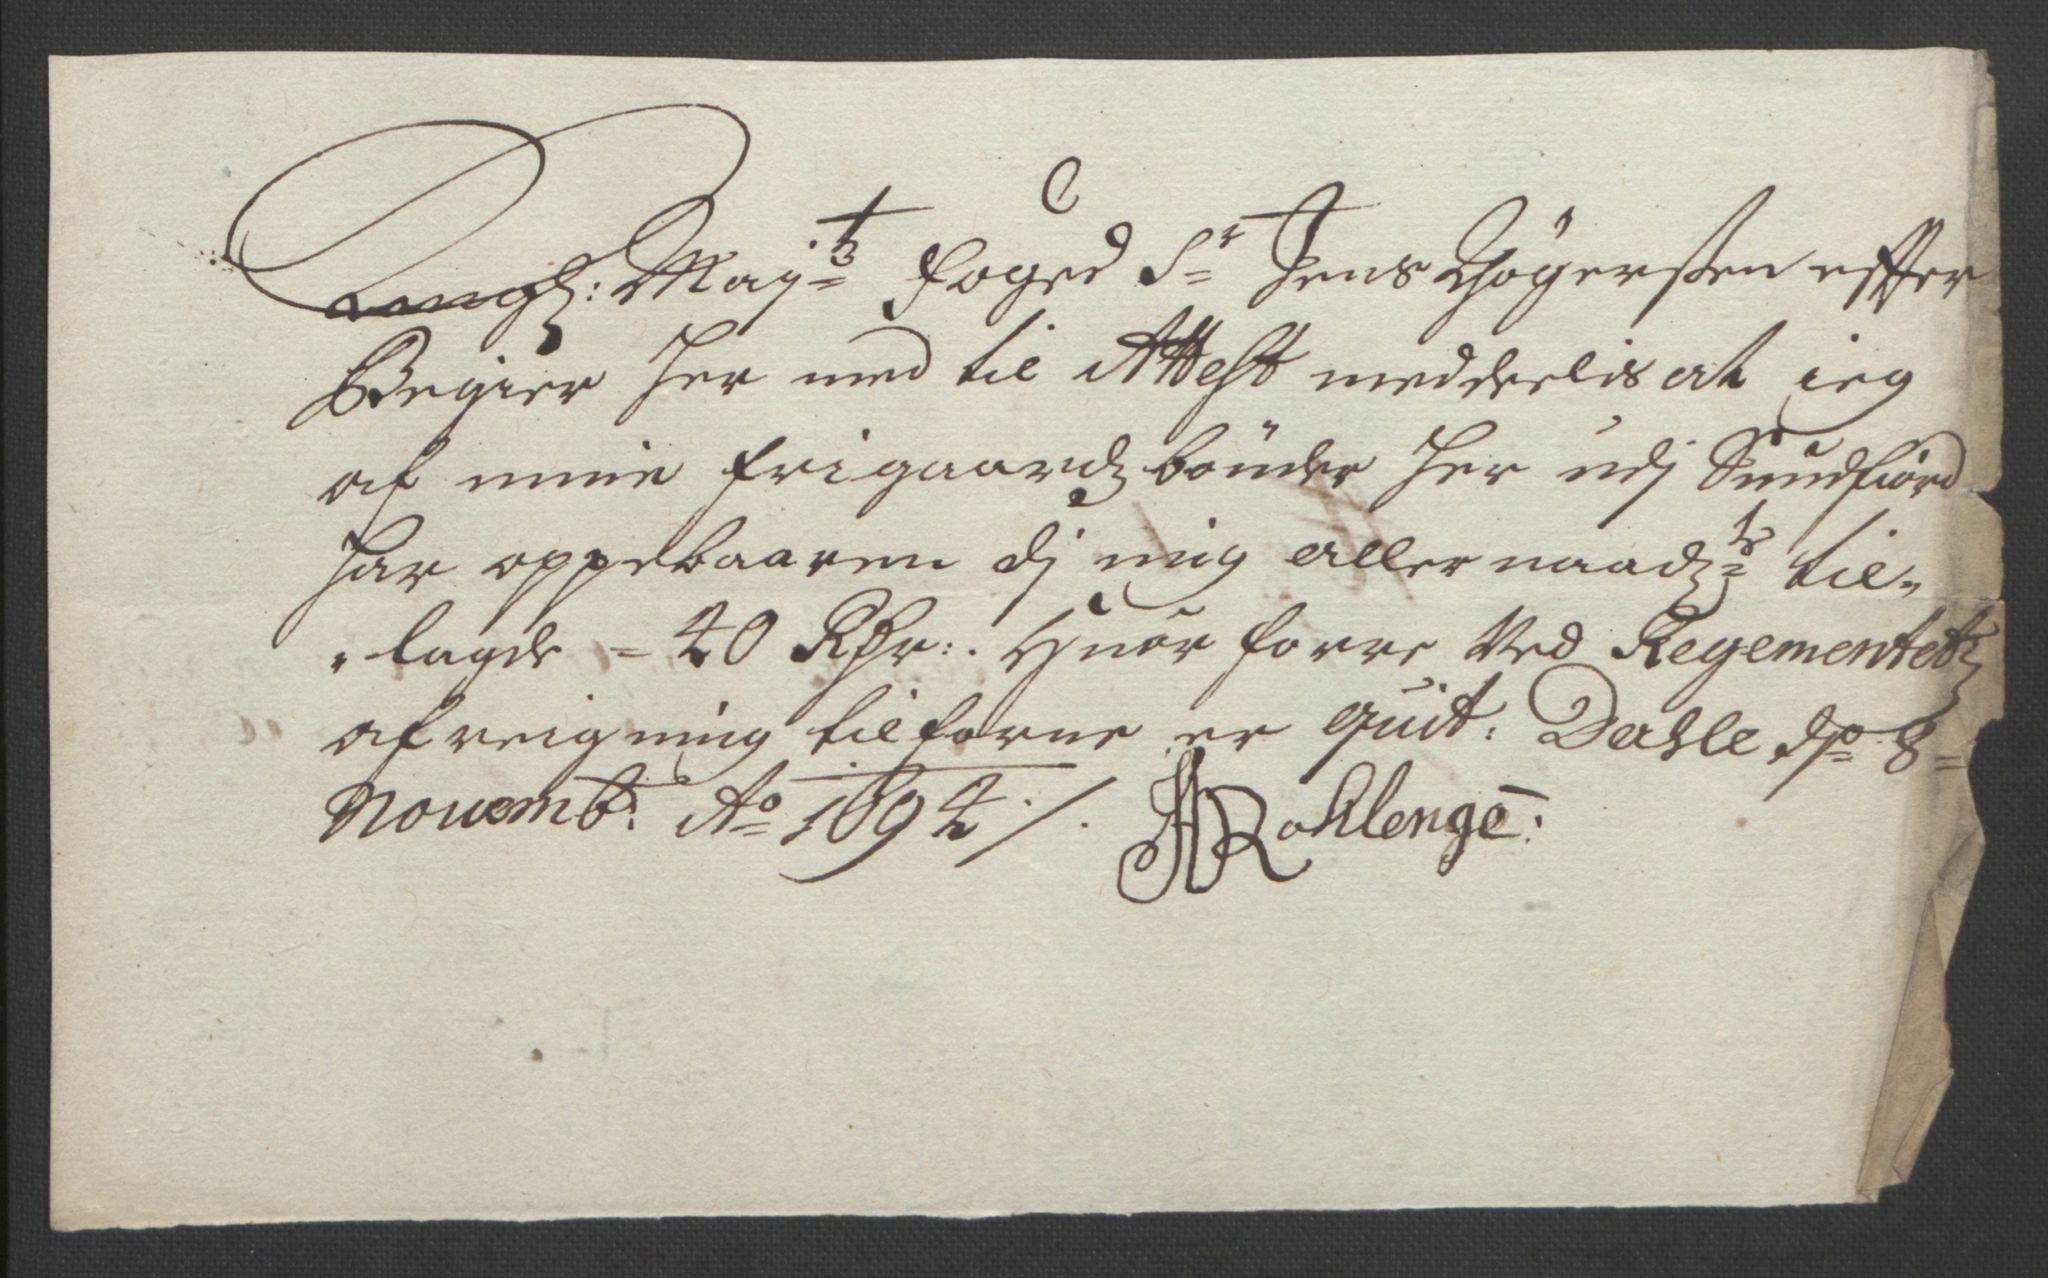 Kongl: May:ts Foged Sr Jens Thögersen effter
Begier her med til Attest meddeelis at ieg
af mine frigaardz bönder her udj Sundfiord
har oppebaaren dj mig allernaadzts til-
lagde = 40 Rdr:. Huor forre Ved Regementetz
afreigning tilforne er quit. Dahle dp 8=
Novemb: Ao 1694 /.
JARohlenge: